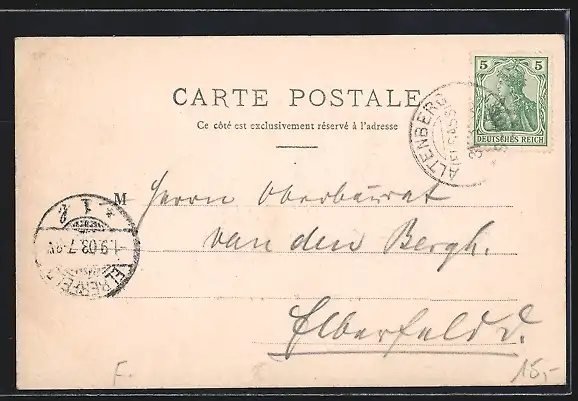 CARTE POSTALE
Ce côté est exclusivement réservé à l'adresse
5 5
DEUTSCHES REICH
ALTENBERG
(ELSASS)
M
Herrn Oberbaurat
van den Bergh.
Elberfeld
ELBERFELD
1.9.03.7-8V.
* 1 z
F.
15,-